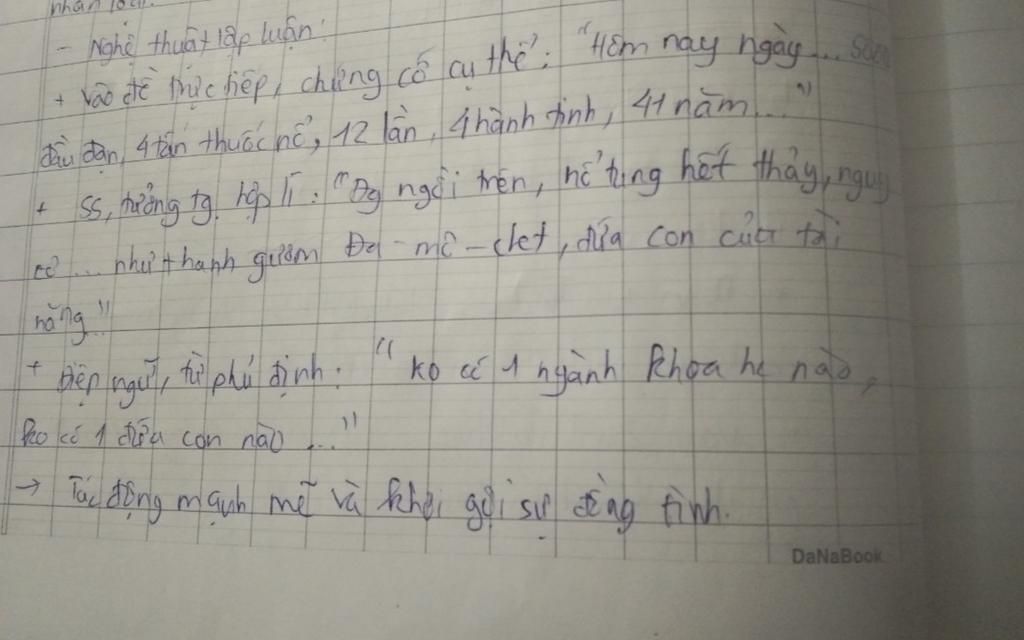 nhân loại.
- Nghệ thuật lập luận:
+ Vào đề trực tiếp, chứng cớ cụ thể: "Hôm nay ngày...
đầu đạn, 4 tấn thuốc nổ, 12 lần, 4 hành tinh, 41 năm..."
+ SS, tưởng tg hợp lí: "Đg ngồi trên, nổ tung hết thảy, nguy
cơ... như thanh gươm Đa-mô-clet, đứa con của tài
năng"
+ Điệp ngữ, từ phủ định: "ko có 1 ngành khoa hc nào,
ko có 1 đứa con nào..."
→ Tác động mạnh mẽ và khơi gợi sự đồng tình.
DaNaBook